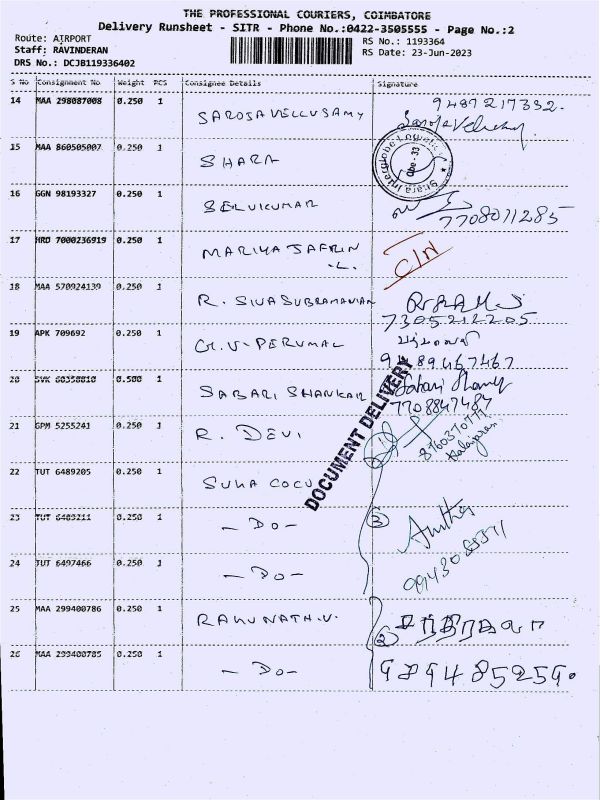 THE PROFESSIONAL COURIERS, COIMBATORE
Delivery Runsheet - SITR - Phone No.:0422-3505555 - Page No.:2
Route: AIRPORT
Staff: RAVINDERAN
DRS No.: DCJB119336402
RS No.: 1193364
RS Date: 23-Jun-2023
S No Consignment No Weight PCS Consignee Details Signature
14 MAA 298087008 0.250 1 SAROJA VELLUSAMY 9487217332.
15 MAA 860505007 0.250 1 SHARA
Sitara Interglobe Logistics
Cbe - 33
16 GGN 98193327 0.250 1 SELVIKUMAR 7708011285
17 HRD 7000236919 0.250 1 MARIYA JAFRIN .L. C/N
18 MAA 570924139 0.250 1 R. SIVASUBRAMANIAN 7305212205
19 APK 709692 0.250 1 G.V. PERUMAL 9489467467
20 SVK 60358818 0.500 1 SABARI SHANKAR 7708847487
DOCUMENT DELIVERY
21 GPM 5255241 0.250 1 R. DEVI
22 TUT 6489205 0.250 1 SUHA COCU
23 TUT 6489211 0.250 1 - Do - 3
24 TUT 6497466 0.250 1 - Do -
25 MAA 299400786 0.250 1 RAGUNATH.V. 2
26 MAA 299400785 0.250 1 - Do - 9894852590